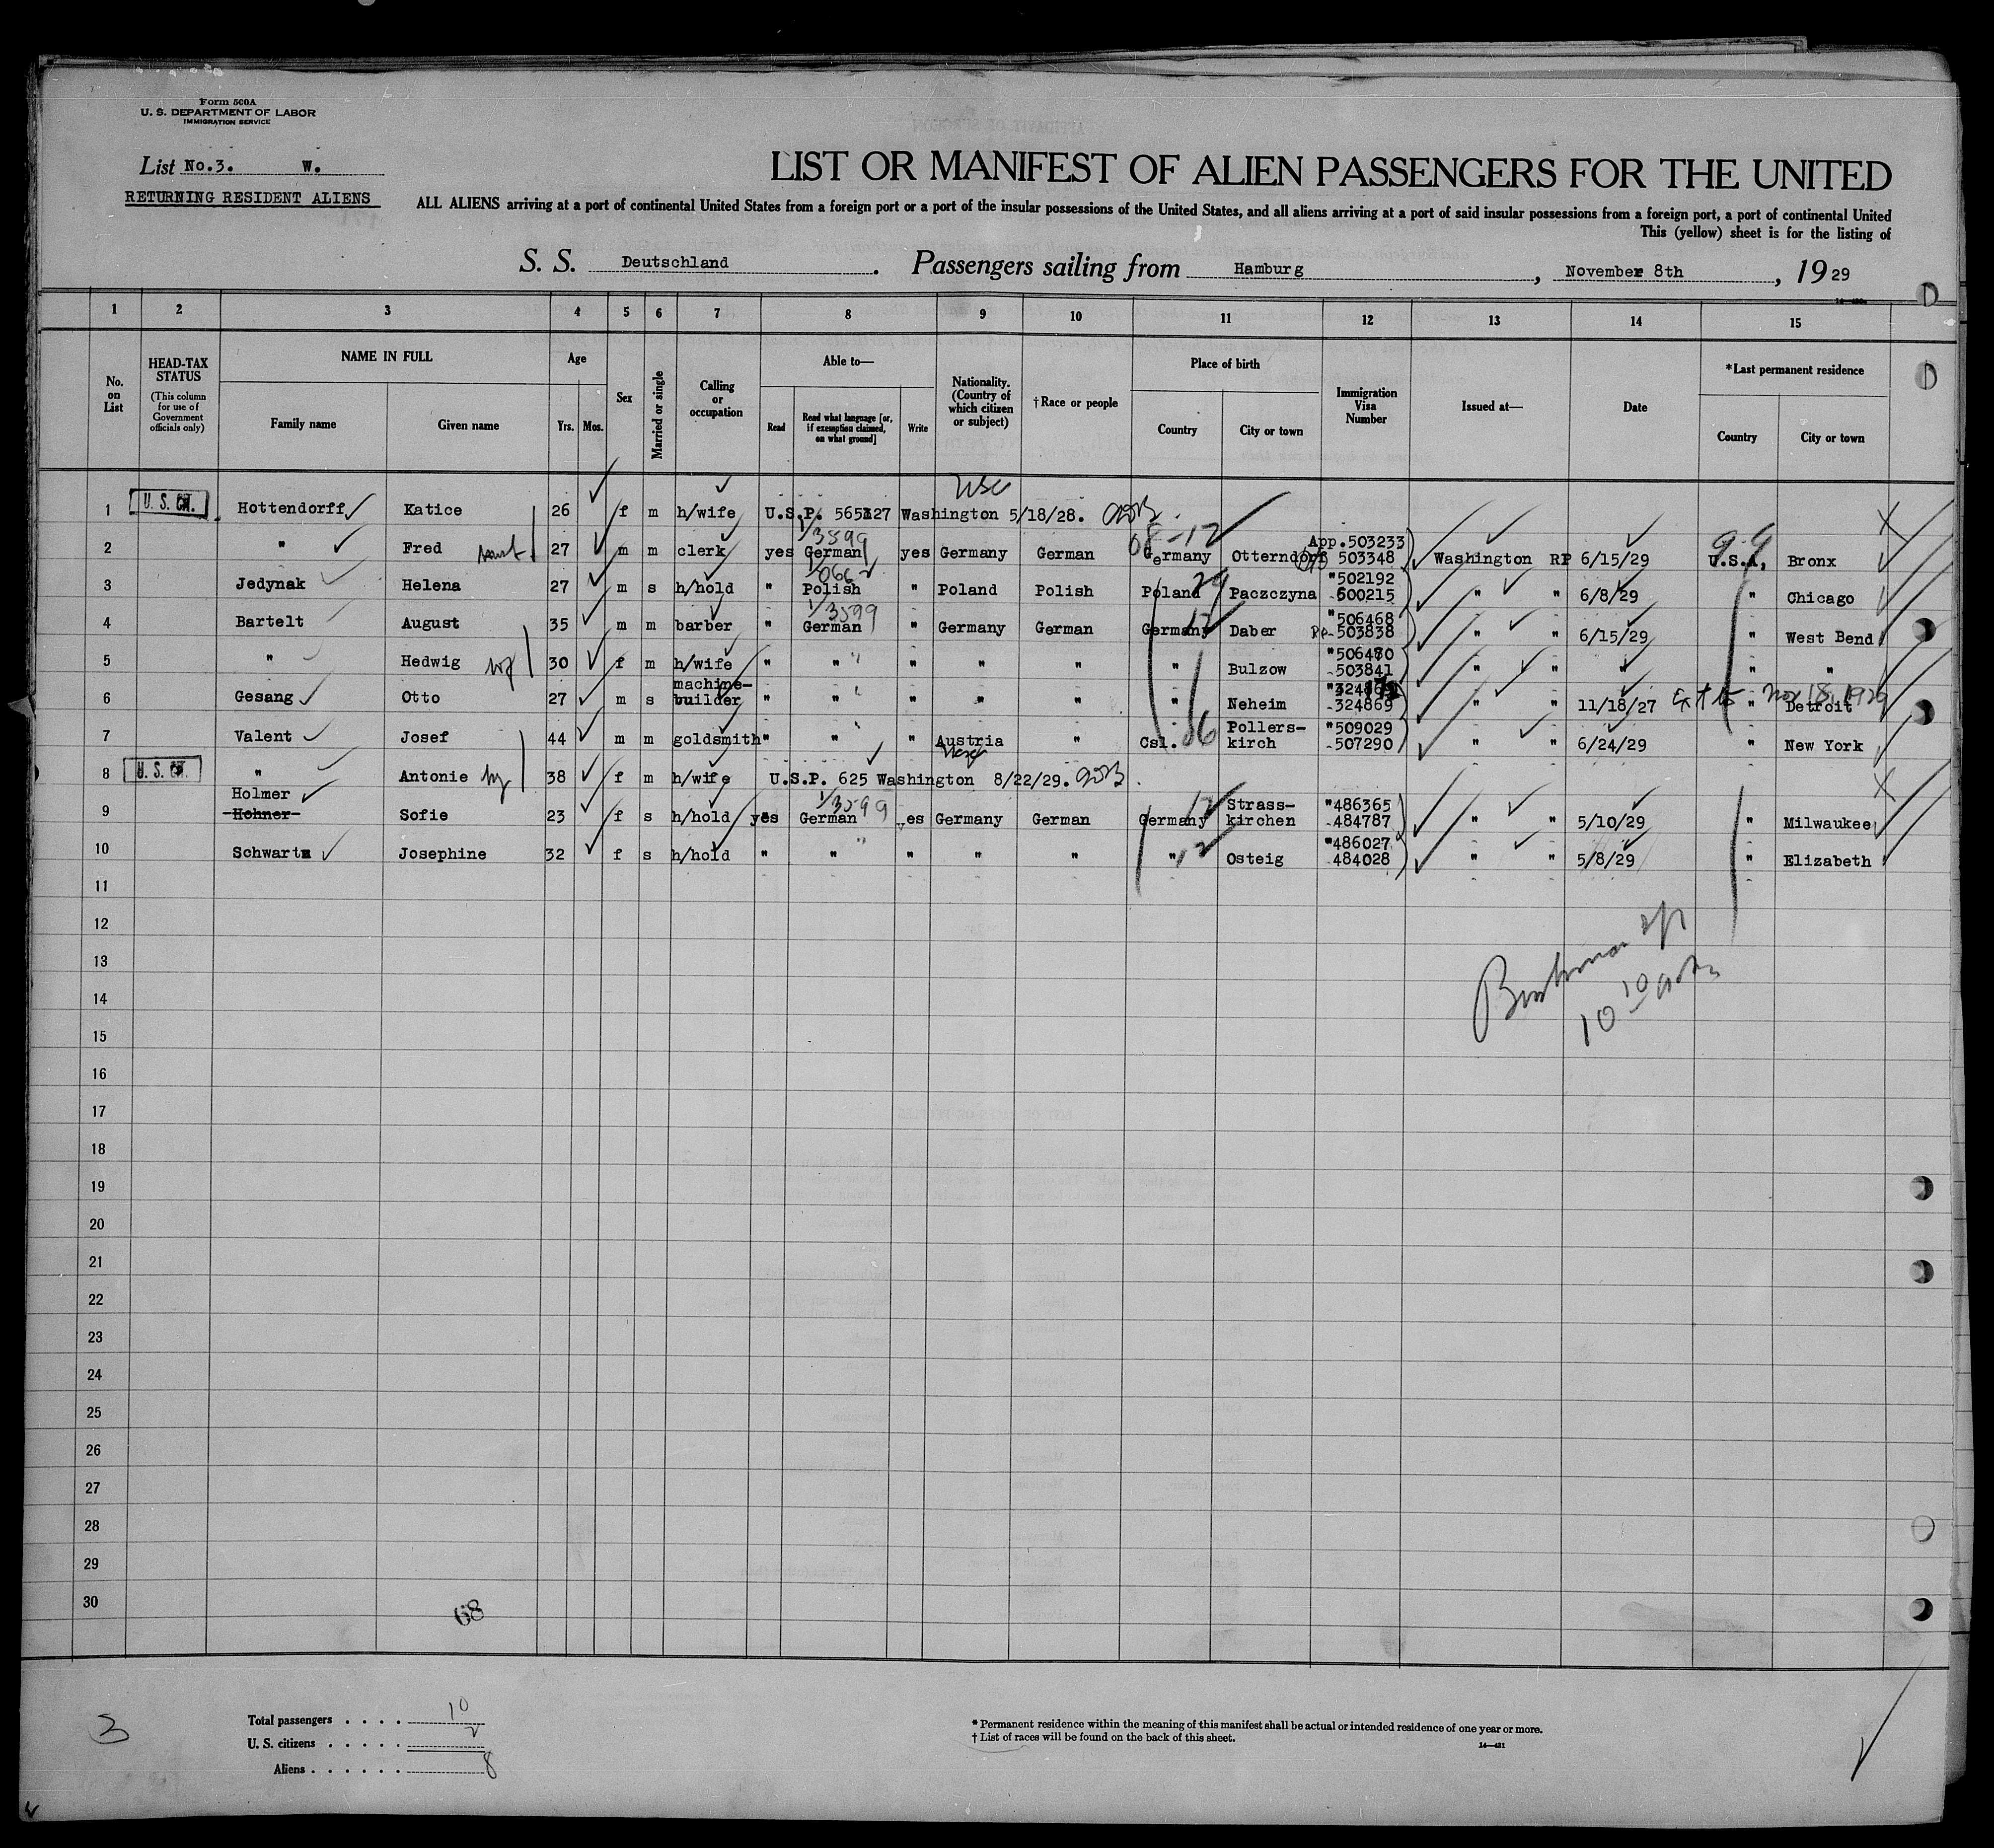 Form 500A
U. S. DEPARTMENT OF LABOR
IMMIGRATION SERVICE
List No.3. W.
RETURNING RESIDENT ALIENS
LIST OR MANIFEST OF ALIEN PASSENGERS FOR THE UNITED
ALL ALIENS arriving at a port of continental United States from a foreign port or a port of the insular possessions of the United States, and all aliens arriving at a port of said insular possessions from a foreign port, a port of continental United
This (yellow) sheet is for the listing of
S. S. Deutschland. Passengers sailing from Hamburg, November 8th, 1929
1 2 3 4 5 6 7 8 9 10 11 12 13 14 15
No. on List
HEAD-TAX STATUS (This column for use of Government officials only)
NAME IN FULL
Family name Given name
Age
Yrs. Mos.
Sex
Married or single
Calling or occupation
Able to—
Read
Read what language [or, if exemption claimed, on what ground]
Write
Nationality. (Country of which citizen or subject)
† Race or people
Place of birth
Country City or town
Immigration Visa Number
Issued at—
Date
* Last permanent residence
Country City or town
usc
1 U. S. CIT. Hottendorff Katice 26 f m h/wife U.S.P. 565327 Washington 5/18/28.
1/3599 08-12
2 " Fred 27 m m clerk yes German yes Germany German Germany Otterndorf App.503233 503348 Washington RP 6/15/29 U.S.A, Bronx
3 Jedynak Helena 27 m s h/hold " Polish " Poland Polish Poland 29 Paczczyna "502192 600215 " " 6/8/29 " Chicago
1/3599
4 Bartelt August 35 m m barber " German " Germany German Germany 12 Daber "506468 503838 " " 6/15/29 " West Bend
5 " Hedwig wf 30 f m h/wife " " " " " " Bulzow "506480 -503841 " " " " "
6 Gesang Otto 27 m s machine-builder " " " " " " Neheim -324869 " " 11/18/27 Ext to Nov 18, 1929 " Detroit
7 Valent Josef 44 m m goldsmith " " " Austria " Csl. 06 Pollers-kirch "509029 -507290 " " 6/24/29 " New York
8 U. S. CIT. " Antonie 38 f m h/wife U.S.P. 625 Washington 8/22/29.
Holmer 1/3599
9 Hohner Sofie 23 f s h/hold yes German yes Germany German Germany 12 Strass-kirchen "486365 -484787 " " 5/10/29 " Milwaukee
10 Schwartz Josephine 32 f s h/hold " " " " " " 12 Osteig "486027 484028 " " 5/8/29 " Elizabeth
11
12
13
14
15
16
17
18
19
20
21
22
23
24
25
26
27
28
29
30
10 10
68
3
Total passengers . . . . 10
U. S. citizens . . . . . 2
Aliens . . . . . . 8
* Permanent residence within the meaning of this manifest shall be actual or intended residence of one year or more.
† List of races will be found on the back of this sheet.
14—431